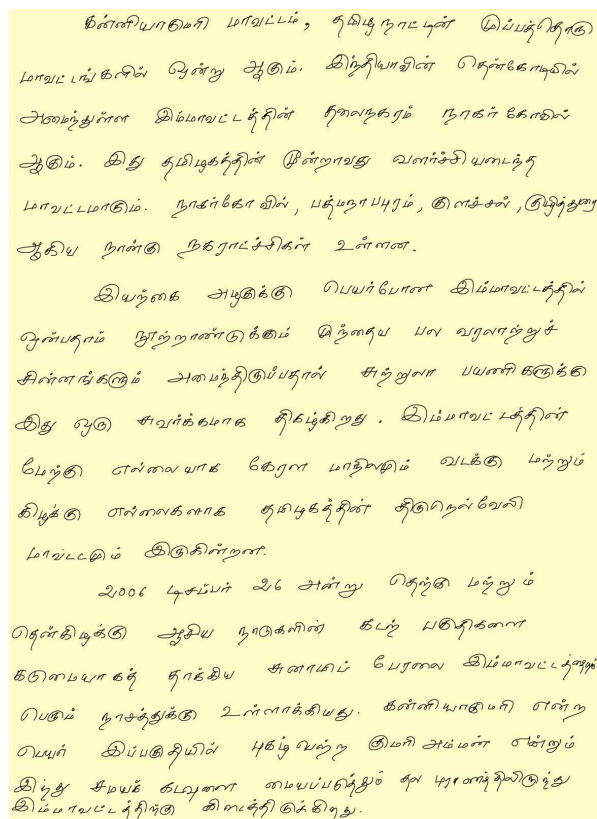 கன்னியாகுமரி மாவட்டம், தமிழ்நாட்டின் முப்பத்தொரு
மாவட்டங்களில் ஒன்று ஆகும். இந்தியாவின் தென்கோடியில்
அமைந்துள்ள இம்மாவட்டத்தின் தலைநகரம் நாகர்கோவில்
ஆகும். இது தமிழகத்தின் மூன்றாவது வளர்ச்சியடைந்த
மாவட்டமாகும். நாகர்கோவில், பத்மநாபபுரம், குளச்சல், குழித்துறை
ஆகிய நான்கு நகராட்ச்சிகள் உள்ளன.
இயற்கை அழகுக்கு பெயர்போன இம்மாவட்டத்தில்
ஒன்பதாம் நூற்றாண்டுக்கும் முந்தைய பல வரலாற்றுச்
சின்னங்களும் அமைந்திருப்பதால் சுற்றுலா பயணிகளுக்கு
இது ஒரு சுவர்க்கமாக திகழ்கிறது. இம்மாவட்டத்தின்
மேற்கு எல்லையாக கேரள மாநிலமும் வடக்கு மற்றும்
கிழக்கு எல்லைகளாக தமிழகத்தின் திருநெல்வேலி
மாவட்டமும் இருகின்றன.
2006 டிசம்பர் 26 அன்று தெற்கு மற்றும்
தென்கிழக்கு ஆசிய நாடுகளின் கடற் பகுதிகளை
கடுமையாகத் தாக்கிய சுனாமிப் பேரலை இம்மாவட்டத்தையும்
பெரும் நாசத்துக்கு உள்ளாக்கியது. கன்னியாகுமரி என்ற
பெயர் இப்பகுதியில் புகழ்பெற்ற குமரி அம்மன் என்றும்
இந்து சமயக் கடவுளை மையப்படுத்தும் தல புராணத்திலிருந்து
இம்மாவட்டத்திற்கு கிடைத்திருக்கிறது.